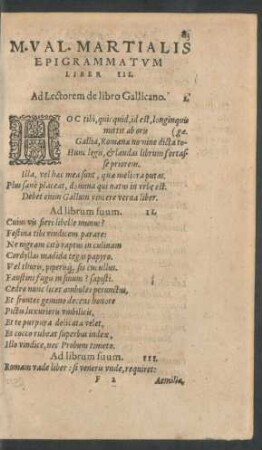 M. VAL. MARTIALIS
EPIGRAMMATVM
LIBER III.
Ad Lectorem de libro Gallicano. I.
HOC tibi, quicquid id est, longinquis
mittit ab oris (gæ.
Gallia, Romanæ nomine dicta to-
Hunc legis, & laudas librum fortas-
se priorem.
Illa, vel hæc mea sunt, quæ meliora putas.
Plus sanè placeat, domina qui natus in vrbe est.
Debet enim Gallum vincere verna liber.
Ad librum suum. II.
Cuius vis fieri libelle munus?
Festina tibi vindicem parare:
Ne nigram citò raptus in culinam
Cordyllas madida tegas papyro.
Vel thuris, piperisq́, sis cucullus.
Faustini fugis in sinum? sapisti.
Cedro nunc licet ambules perunctus,
Et frontis gemino decens honore
Pictis luxurieris vmbilicis,
Et te purpura delicata velet,
Et cocco rubeat superbus index,
Illo vindice, nec Probum timeto.
Ad librum suum. III.
Romam vade liber: si veneris vnde, requiret:
F 2 Aemiliæ